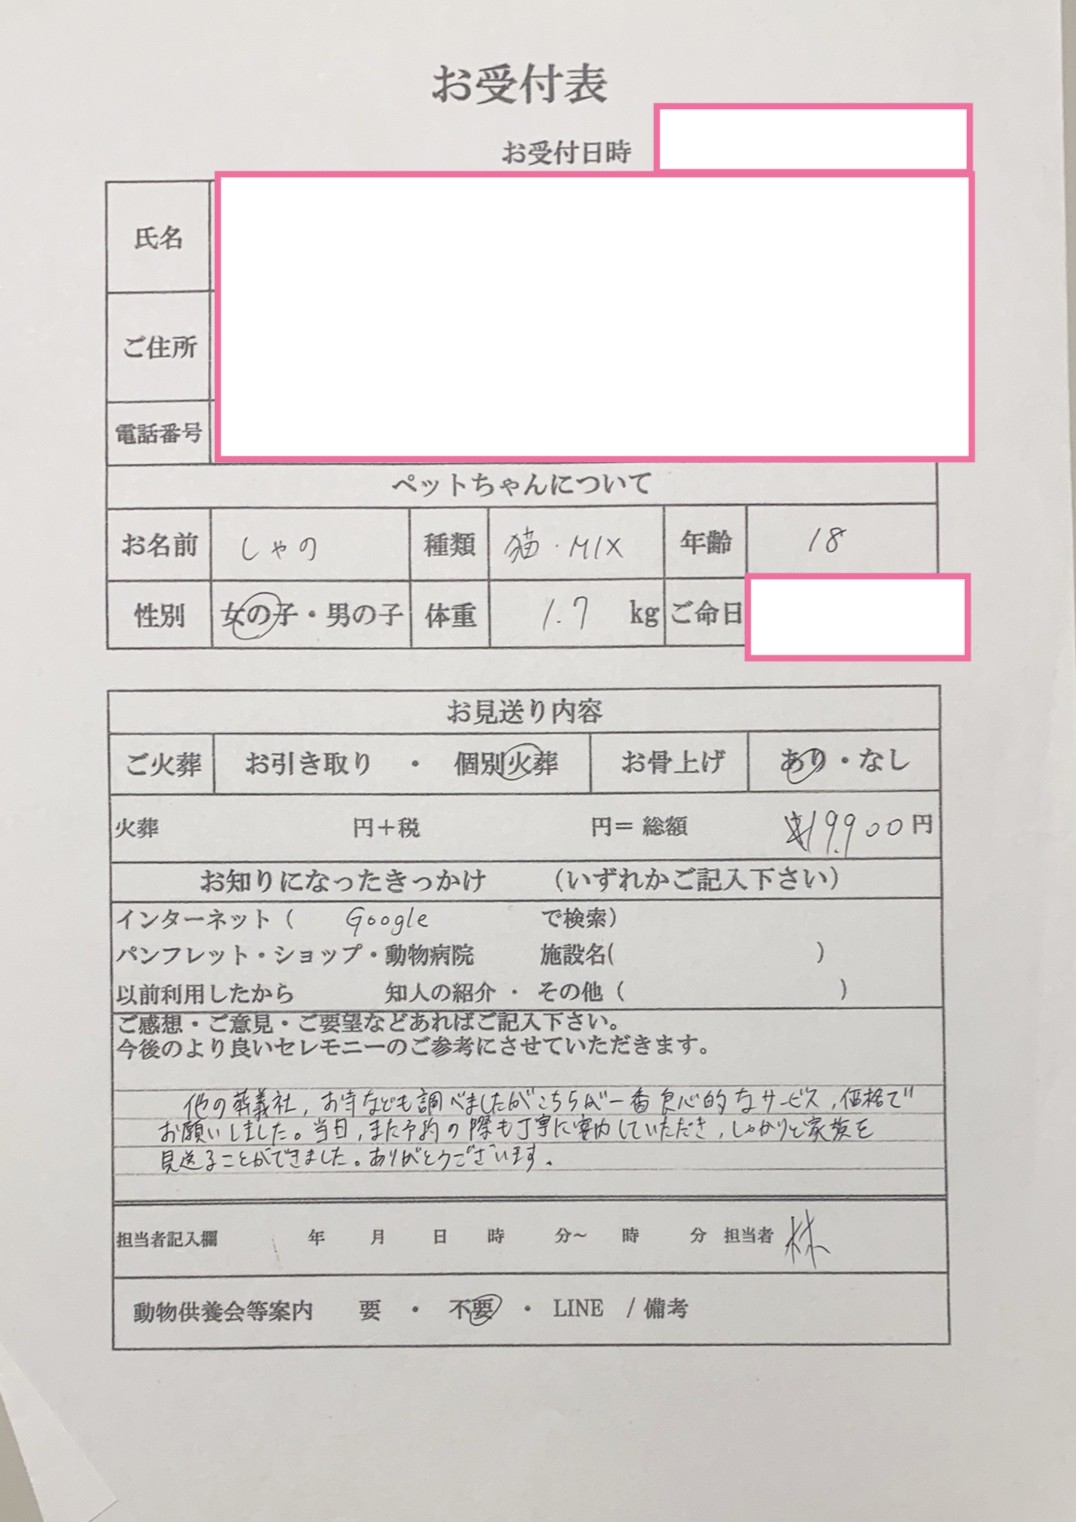 お受付表
お受付日時
氏名
ご住所
電話番号
ペットちゃんについて
お名前 しゃの 種類 猫・MIX 年齢 18
性別 女の子・男の子 体重 1.7 kg ご命日
お見送り内容
ご火葬 お引き取り ・ 個別火葬 お骨上げ あり・なし
火葬 円+税 円= 総額 ¥19.900円
お知りになったきっかけ (いずれかご記入下さい)
インターネット( Google で検索)
パンフレット・ショップ・動物病院 施設名( )
以前利用したから 知人の紹介 ・ その他( )
ご感想・ご意見・ご要望などあればご記入下さい。
今後のより良いセレモニーのご参考にさせていただきます。
他の葬義社、お寺なども調べましたがこちらが一番良心的なサービス、価格で
お願いしました。当日、また予約の際も丁寧に案内していただき、しっかりと家族を
見送ることができました。ありがとうございます。
担当者記入欄 年 月 日 時 分~ 時 分 担当者 林
動物供養会等案内 要 ・ 不要 ・ LINE / 備考